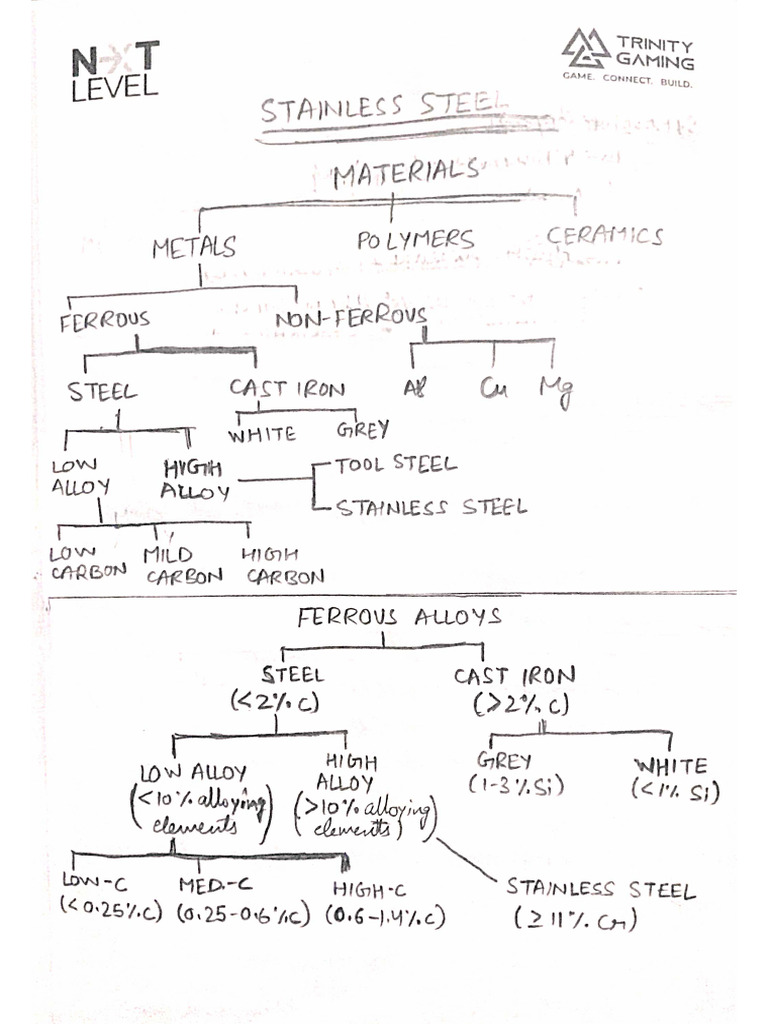 NEXT
LEVEL
TRINITY
GAMING
GAME. CONNECT. BUILD.
STAINLESS STEEL
MATERIALS
METALS POLYMERS CERAMICS
FERROUS NON-FERROUS
STEEL CAST IRON Al Cu Mg
WHITE GREY
LOW HIGH TOOL STEEL
ALLOY ALLOY
STAINLESS STEEL
LOW MILD HIGH
CARBON CARBON CARBON
FERROUS ALLOYS
STEEL CAST IRON
(<2%C) (>2%C)
LOW ALLOY HIGH GREY WHITE
(<10% alloying ALLOY (1-3%Si) (<1% Si)
elements) (>10% alloying
elements)
LOW-C MED.-C HIGH-C STAINLESS STEEL
(<0.25%C) (0.25-0.6%C) (0.6-1.4%C) (≥11% Cr)